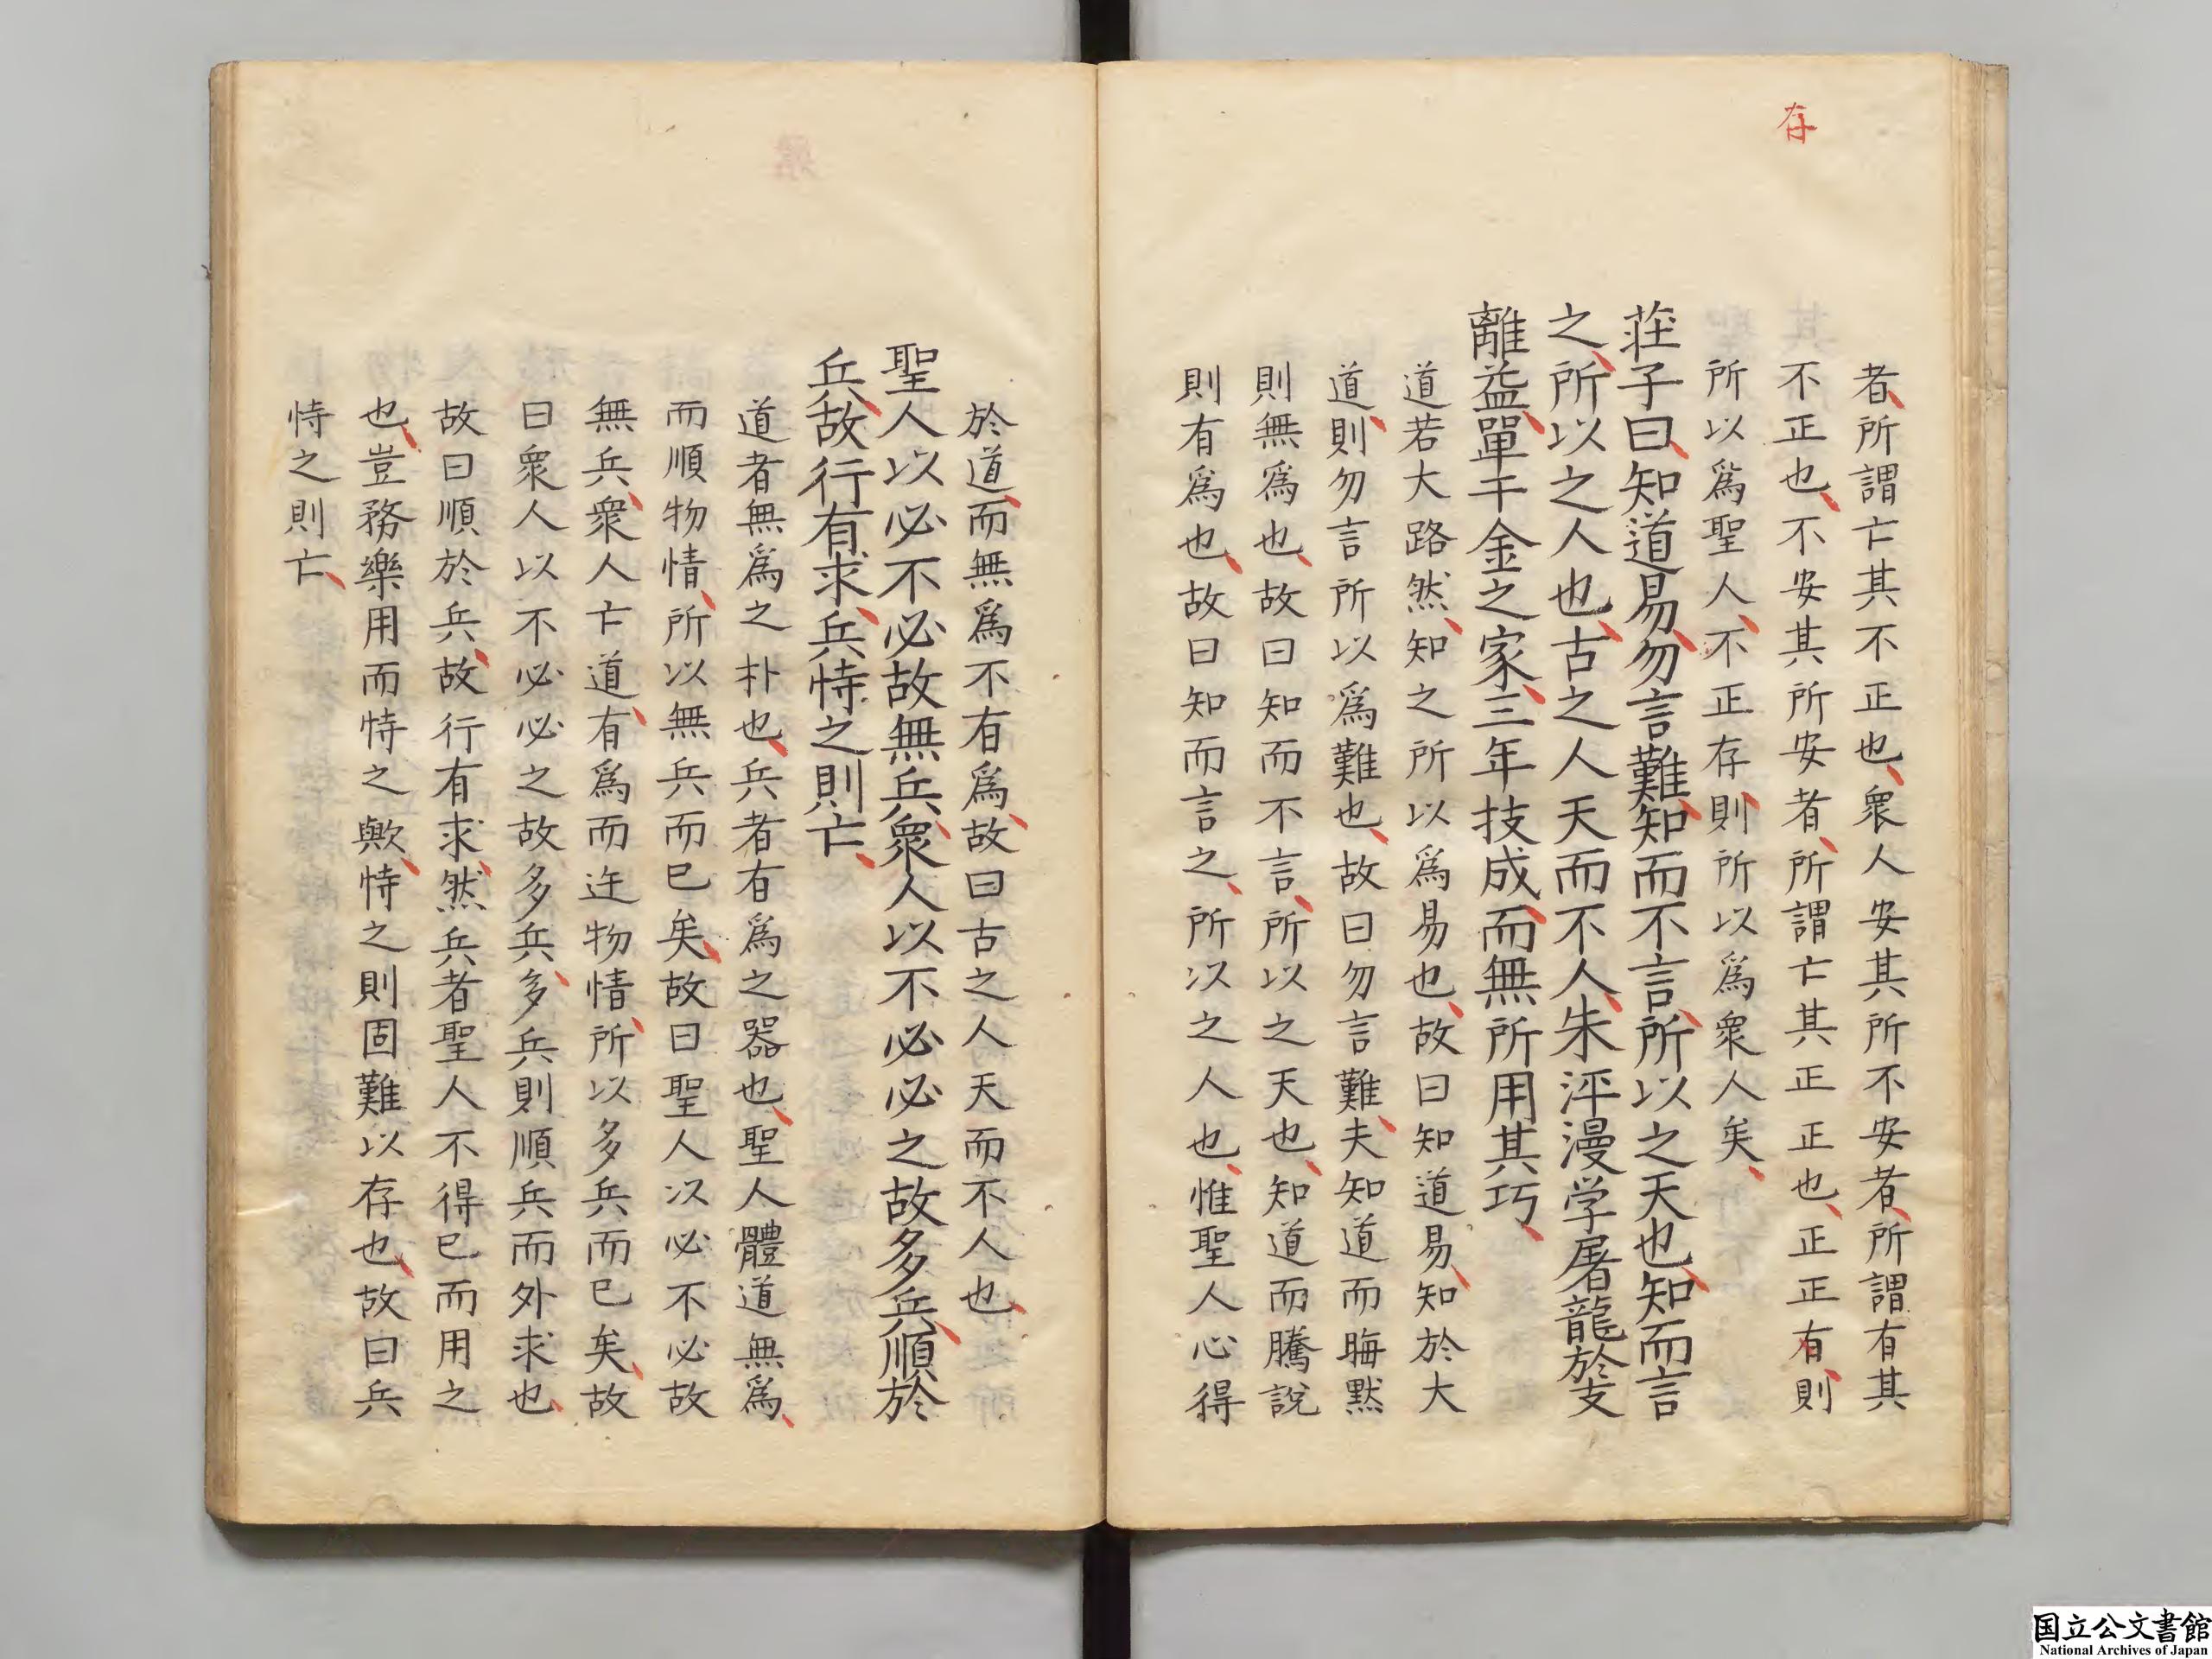 存
者所謂亡其不正也衆人安其所不安者所謂有其
不正也不安其所安者所謂亡其正正也正正有則
所以爲聖人不正存則所以爲衆人矣
莊子曰知道易勿言難知而不言所以之天也知而言
之所以之人也古之人天而不人朱泙漫学屠龍於支
離益單千金之家三年技成而無所用其巧
道若大路然知之所以爲易也故曰知道易知於大
道則勿言所以爲難也故曰勿言難夫知道而晦黙
則無爲也故曰知而不言所以之天也知道而騰說
則有爲也故曰知而言之所以之人也惟聖人心得
於道而無爲不有爲故曰古之人天而不人也
聖人以必不必故無兵衆人以不必必之故多兵順於
兵故行有求兵恃之則亡
道者無爲之朴也兵者有爲之器也聖人體道無爲
而順物情所以無兵而已矣故曰聖人以必不必故
無兵衆人亡道有爲而迕物情所以多兵而已矣故
曰衆人以不必必之故多兵多兵則順兵而外求也
故曰順於兵故行有求然兵者聖人不得已而用之
也豈務樂用而恃之歟恃之則固難以存也故曰兵
恃之則亡
国立公文書館
National Archives of Japan